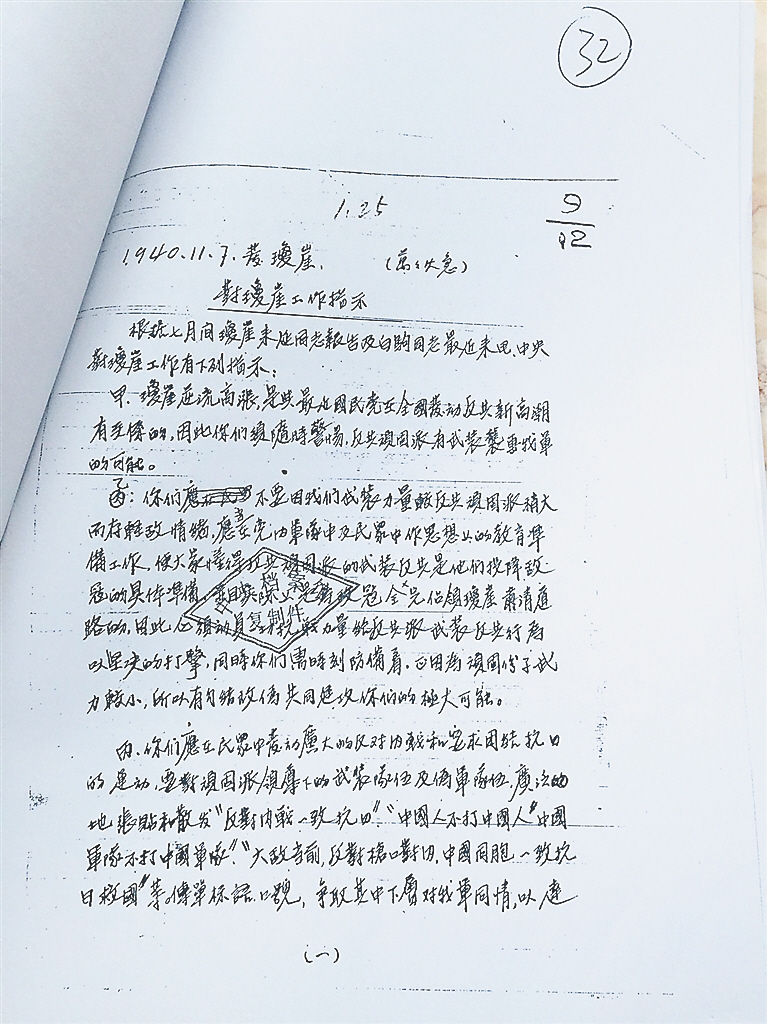 32
1.25
9
12
1940.11.7.發瓊崖. (萬々火急)
對瓊崖工作指示
根据七月間瓊崖来延同志報告及白駒同志最近来电、中央
對瓊崖工作有下列指示:
甲、瓊崖逆流高漲,是與最近國民党在全國發动反共新高潮
有关係的,因此你们須隨時警惕,反共頑固派有武装襲擊我軍
的可能。
乙:你们不要因我们武装力量較反共頑固派稍大
而存輕敌情緒,應當在党内軍隊中及民眾中作思想上的教育準
備工作,使大家懂得反共頑固派的武装反共是他们投降敌
冠的具体準備,是敌冠全完佔領瓊崖肅清道
路的,因此必須动員力量給反共派武装反共行為
以坚决的打擊,同時你们需時刻防備着,正因為頑固分子武
力較小,所以有勾结敌偽共同進攻你们的極大可能。
丙、你们應在民眾中發动廣大的反对内戰和要求团结抗日
的運动,要對頑固派領導下的武装隊伍及偽軍隊伍,廣泛的
地張貼和散发"反對内戰一致抗日""中國人不打中國人""中國
軍隊不打中國軍隊""大敌当前,反對槍口對内,中國同胞一致抗
日救國"等傳單标語口號,争取其中下層对我軍同情,以達
(一)
档案
复制件